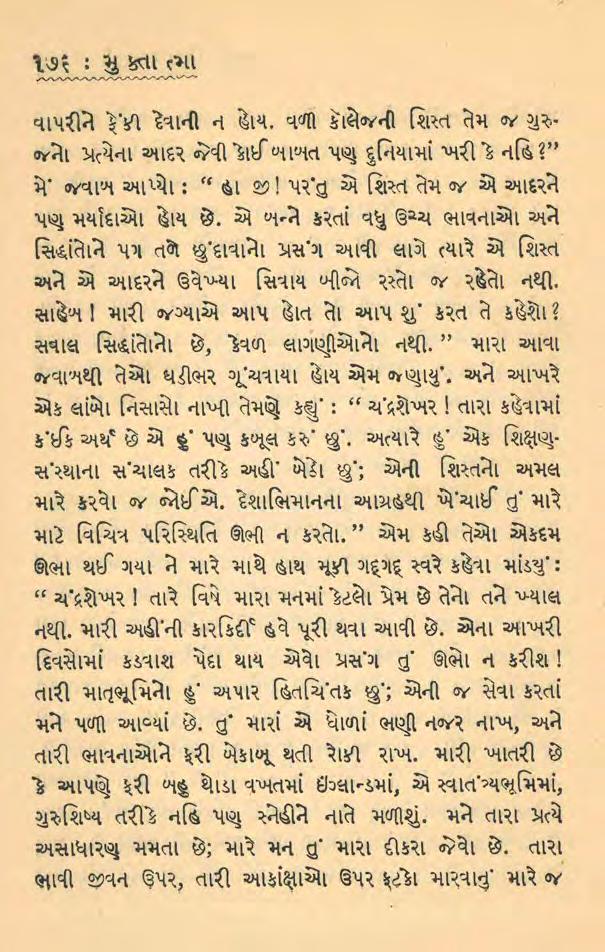 ૧૭૬ : મુ ક્તા ત્મા
વાપરીને ફેંકી દેવાની ન હોય. વળી કૉલેજની શિસ્ત તેમ જ ગુરુ-
જનો પ્રત્યેના આદર જેવી કોઈ બાબત પણ દુનિયામાં ખરી કે નહિ ?”
મેં જવાબ આપ્યો : “ હા જી ! પરંતુ એ શિસ્ત તેમ જ એ આદરને
પણ મર્યાદાઓ હોય છે. એ બન્ને કરતાં વધુ ઉચ્ચ ભાવનાઓ અને
સિદ્ધાંતોને પગ તળે છુંદાવાનો પ્રસંગ આવી લાગે ત્યારે એ શિસ્ત
અને એ આદરને ઉવેખ્યા સિવાય બીજો રસ્તો જ રહેતો નથી.
સાહેબ ! મારી જગ્યાએ આપ હોત તો આપ શું કરત તે કહેશો ?
સવાલ સિદ્ધાંતોનો છે, કેવળ લાગણીઓનો નથી. ” મારા આવા
જવાબથી તેઓ ઘડીભર ગૂંચવાયા હોય એમ જણાયું. અને આખરે
એક લાંબો નિસાસો નાખી તેમણે કહ્યું : “ ચંદ્રશેખર ! તારા કહેવામાં
કંઈક અર્થ છે એ હું પણ કબૂલ કરું છું. અત્યારે હું એક શિક્ષણ-
સંસ્થાના સંચાલક તરીકે અહીં બેઠો છું; એની શિસ્તનો અમલ
મારે કરવો જ જોઈએ. દેશાભિમાનના આગ્રહથી ખેંચાઈ તું મારે
માટે વિચિત્ર પરિસ્થિતિ ઊભી ન કરતો. ” એમ કહી તેઓ એકદમ
ઊભા થઈ ગયા ને મારે માથે હાથ મૂકી ગદ્‌ગદ્ સ્વરે કહેવા માંડ્યું :
“ ચંદ્રશેખર ! તારે વિષે મારા મનમાં કેટલો પ્રેમ છે તેનો તને ખ્યાલ
નથી. મારી અહીંની કારકિર્દી હવે પૂરી થવા આવી છે. એના આખરી
દિવસોમાં કડવાશ પેદા થાય એવો પ્રસંગ તું ઊભો ન કરીશ !
તારી માતૃભૂમિનો હું અપાર હિતચિંતક છું; એની જ સેવા કરતાં
મને પળી આવ્યાં છે. તું મારાં એ ધોળાં ભણી નજર નાખ, અને
તારી ભાવનાઓને ફરી બેકાબૂ થતી રોકી રાખ. મારી ખાતરી છે
કે આપણે ફરી બહુ થોડા વખતમાં ઇંગ્લાન્ડમાં, એ સ્વાતંત્ર્યભૂમિમાં,
ગુરુશિષ્ય તરીકે નહિ પણ સ્નેહીને નાતે મળીશું. મને તારા પ્રત્યે
અસાધારણ મમતા છે; મારે મન તું મારા દીકરા જેવો છે. તારા
ભાવી જીવન ઉપર, તારી આકાંક્ષાઓ ઉપર ફટકો મારવાનું મારે જ